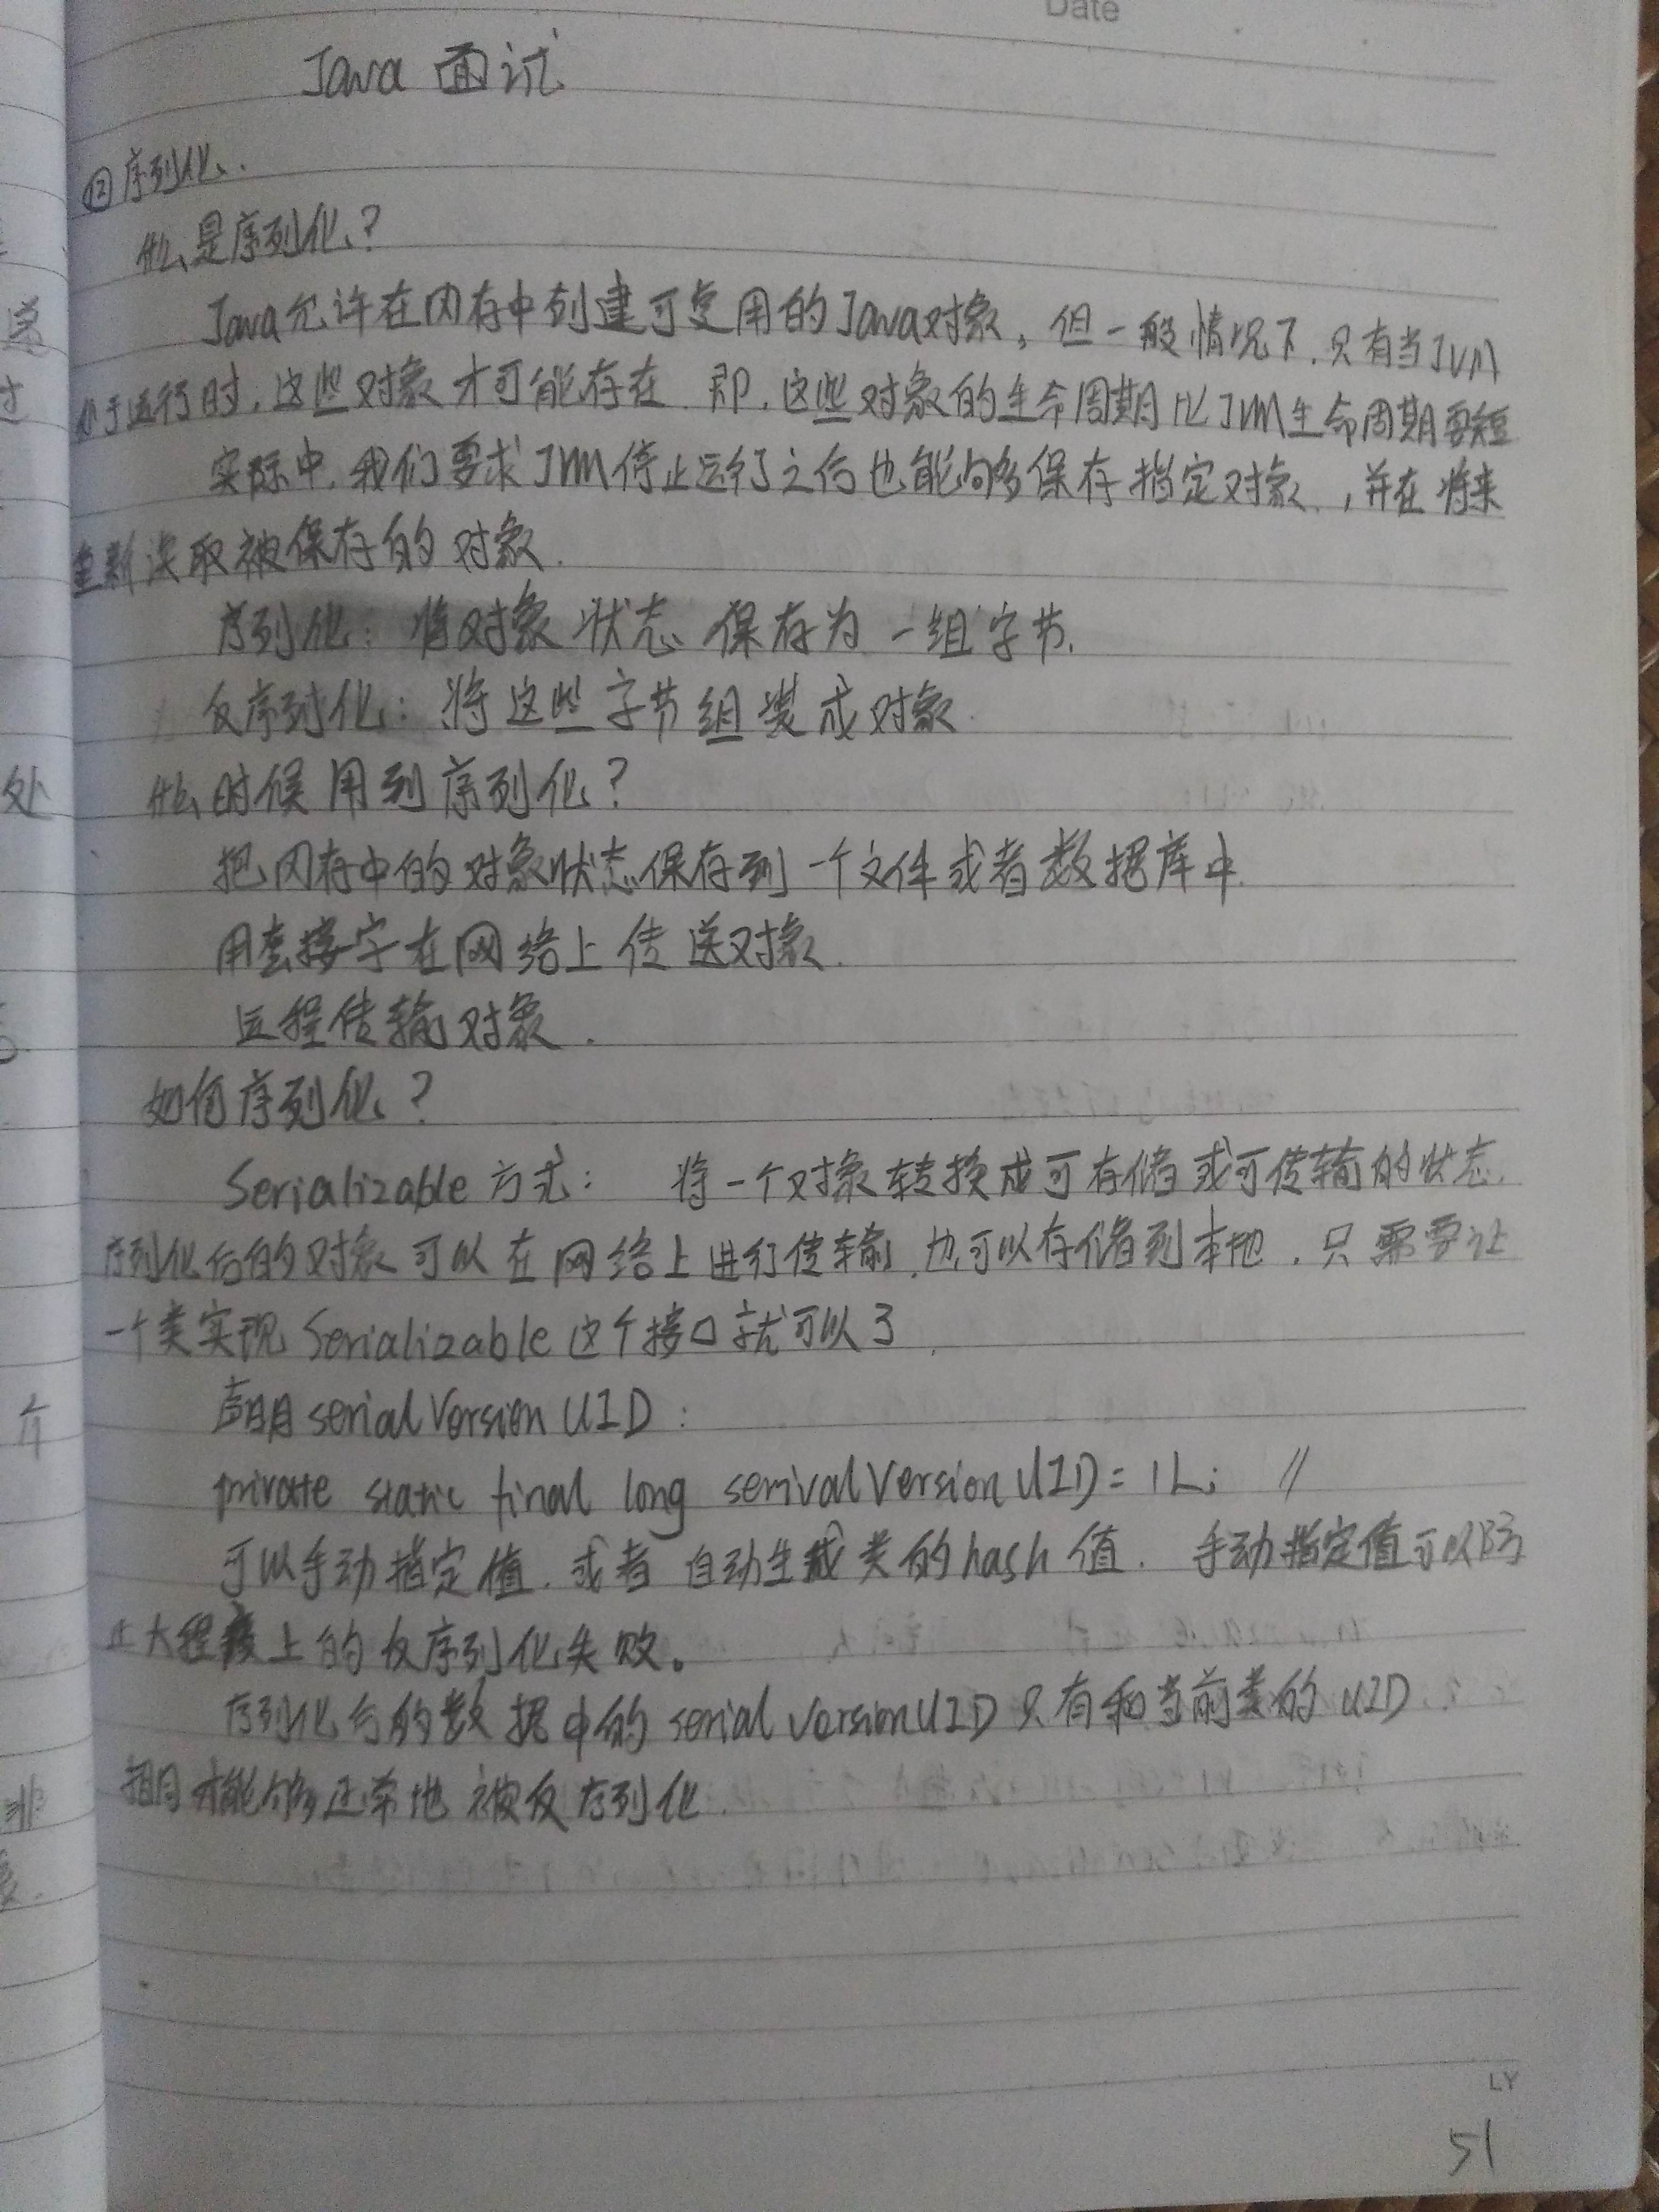 Date
Java 面试
⑫序列化.
什么是序列化?
Java允许在内存中创建可复用的Java对象,但一般情况下,只有当JVM
处于运行时,这些对象才可能存在.即,这些对象的生命周期比JVM生命周期要短
实际中,我们要求JVM停止运行之后也能够多保存指定对象,并在将来
重新读取被保存的对象.
序列化: 将对象状态保存为一组字节.
反序列化: 将这些字节组装成对象.
什么时候用到序列化?
把内存中的对象状态保存到一个文件或者数据库中.
用套接字在网络上传送对象.
远程传输对象.
如何序列化?
Serializable方式: 将一个对象转换成可存储或可传输的状态.
序列化后的对象可以在网络上进行传输,也可以存储到本地.只需要让
一个类实现Serializable这个接口就可以了.
声明serialVersionUID:
private static final long serivalVersionUID=1L; //
可以手动指定值.或者自动生成类的hash值.手动指定值可以防
止大程度上的反序列化失败。
序列化后的数据中的serialVersionUID只有和当前类的UID
相同才能够正常地被反序列化.
LY
51
处